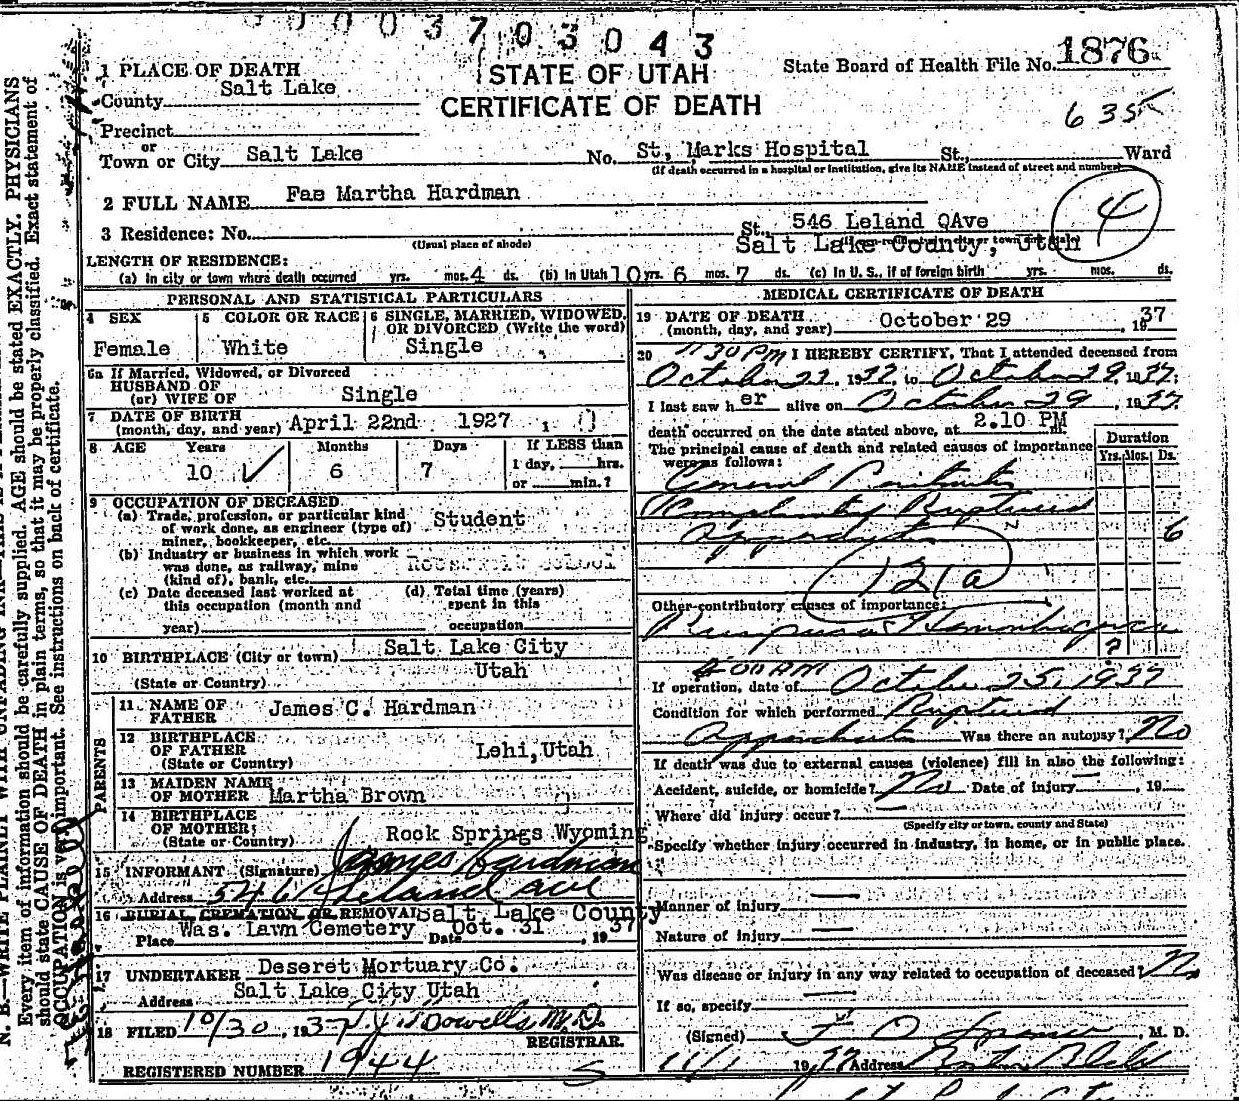 0 0 0 3 7 0 3 0 4 3
1 PLACE OF DEATH
County Salt Lake
STATE OF UTAH
CERTIFICATE OF DEATH
State Board of Health File No. 1876
635
Precinct
or
Town or City Salt Lake No. St, Marks Hospital St., Ward
(If death occurred in a hospital or institution, give its NAME instead of street and number)
2 FULL NAME Fae Martha Hardman
4
3 Residence: No. St., 546 Leland QAve
(Usual place of abode) Salt Lake County, Utah
LENGTH OF RESIDENCE:
(a) In city or town where death occurred yrs. mos. 4 ds. (b) In Utah 10 yrs. 6 mos. 7 ds. (c) In U. S., if of foreign birth yrs. mos. ds.
PERSONAL AND STATISTICAL PARTICULARS
4 SEX 5 COLOR OR RACE 6 SINGLE, MARRIED, WIDOWED, OR DIVORCED (Write the word)
Female White Single
6a If Married, Widowed, or Divorced
HUSBAND OF
(or) WIFE OF Single
7 DATE OF BIRTH
(month, day, and year) April 22nd 1927
8 AGE Years Months Days If LESS than
10 6 7 1 day, hrs.
or min.?
9 OCCUPATION OF DECEASED
(a) Trade, profession, or particular kind
of work done, as engineer (type of) Student
miner, bookkeeper, etc.
(b) Industry or business in which work
was done, as railway, mine
(kind of), bank, etc.
(c) Date deceased last worked at (d) Total time (years)
this occupation (month and spent in this
year) occupation
10 BIRTHPLACE (City or town) Salt Lake City
(State or Country) Utah
PARENTS
11 NAME OF
FATHER James C. Hardman
12 BIRTHPLACE
OF FATHER Lehi, Utah
(State or Country)
13 MAIDEN NAME
OF MOTHER Martha Brown
14 BIRTHPLACE
OF MOTHER
(State or Country) Rook Springs Wyoming
15 INFORMANT (Signature) James Hardman
Address 546 Leland ave
16 BURIAL, CREMATION, OR REMOVAL Salt Lake County
Place Was. Lawn Cemetery Date Oct. 31, 1937
17 UNDERTAKER Deseret Mortuary Co.
Address Salt Lake City Utah
18 FILED 10/30, 1937 M.D.
REGISTRAR.
REGISTERED NUMBER 1944
MEDICAL CERTIFICATE OF DEATH
19 DATE OF DEATH
(month, day, and year) October 29, 1937
20 I HEREBY CERTIFY, That I attended deceased from
October 1937, to October 29, 1937;
I last saw her alive on October 29, 1937
death occurred on the date stated above, at 2.10 PM m.
The principal cause of death and related causes of importance
were as follows:
Duration
Yrs. Mos. Ds.
General Peritonitis
Ruptured
6
121a
Other contributory causes of importance:
Purpura
?
:00 AM
If operation, date of October 25, 1937
Condition for which performed Ruptured
Was there an autopsy? No
If death was due to external causes (violence) fill in also the following:
Accident, suicide, or homicide? No Date of injury, 19
Where did injury occur?
(Specify city or town, county and State)
Specify whether injury occurred in industry, in home, or in public place.
Manner of injury
Nature of injury
Was disease or injury in any way related to occupation of deceased? No
If so, specify
(Signed), M. D.
11/1 1937 Address
N. B.—WRITE PLAINLY WITH UNFADING INK—THIS IS
Every item of information should be carefully supplied. AGE should be stated EXACTLY. PHYSICIANS
should state CAUSE OF DEATH in plain terms, so that it may be properly classified. Exact statement of
OCCUPATION is very important. See instructions on back of certificate.